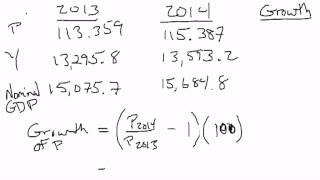 2013 2014 Growth
P 113.359 115.387
Y 13,295.8 13,593.2
Nominal GDP 15,075.7 15,684.8
Growth of P = (P2014 / P2013 - 1)(100)
=